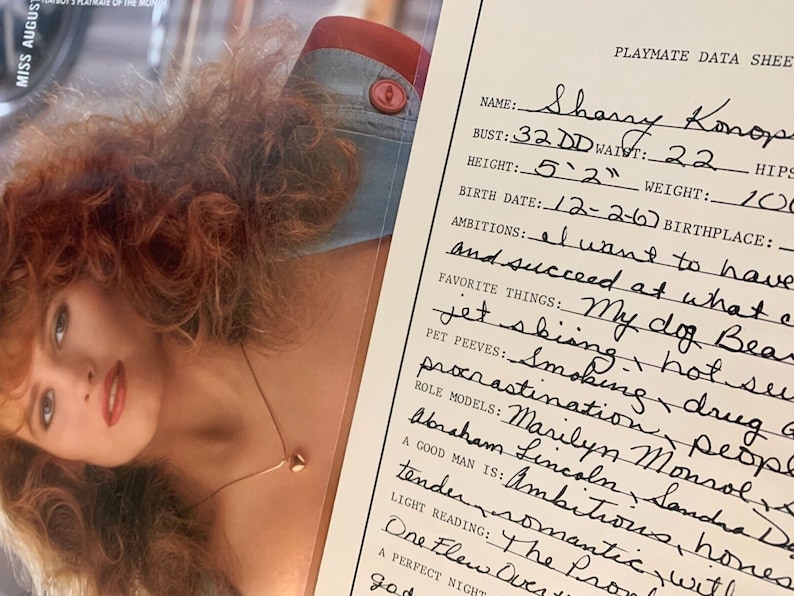 MISS AUGUST
PLAYBOY'S PLAYMATE OF THE MONTH
PLAYMATE DATA SHEE
NAME: Sharry Konops
BUST: 32DD WAIST: 22 HIPS
HEIGHT: 5'2" WEIGHT: 100
BIRTH DATE: 12-2-67 BIRTHPLACE:
AMBITIONS: I want to have
and succeed at what
FAVORITE THINGS: My dog Bear
jet skiing, hot
PET PEEVES: Smoking, drug
procrastination, people
ROLE MODELS: Marilyn Monroe,
Abraham Lincoln, Sandra Da
A GOOD MAN IS: Ambitious, hones
tender, romantic, with
LIGHT READING: The Prop
One Flew Over th
A PERFECT NIGHT